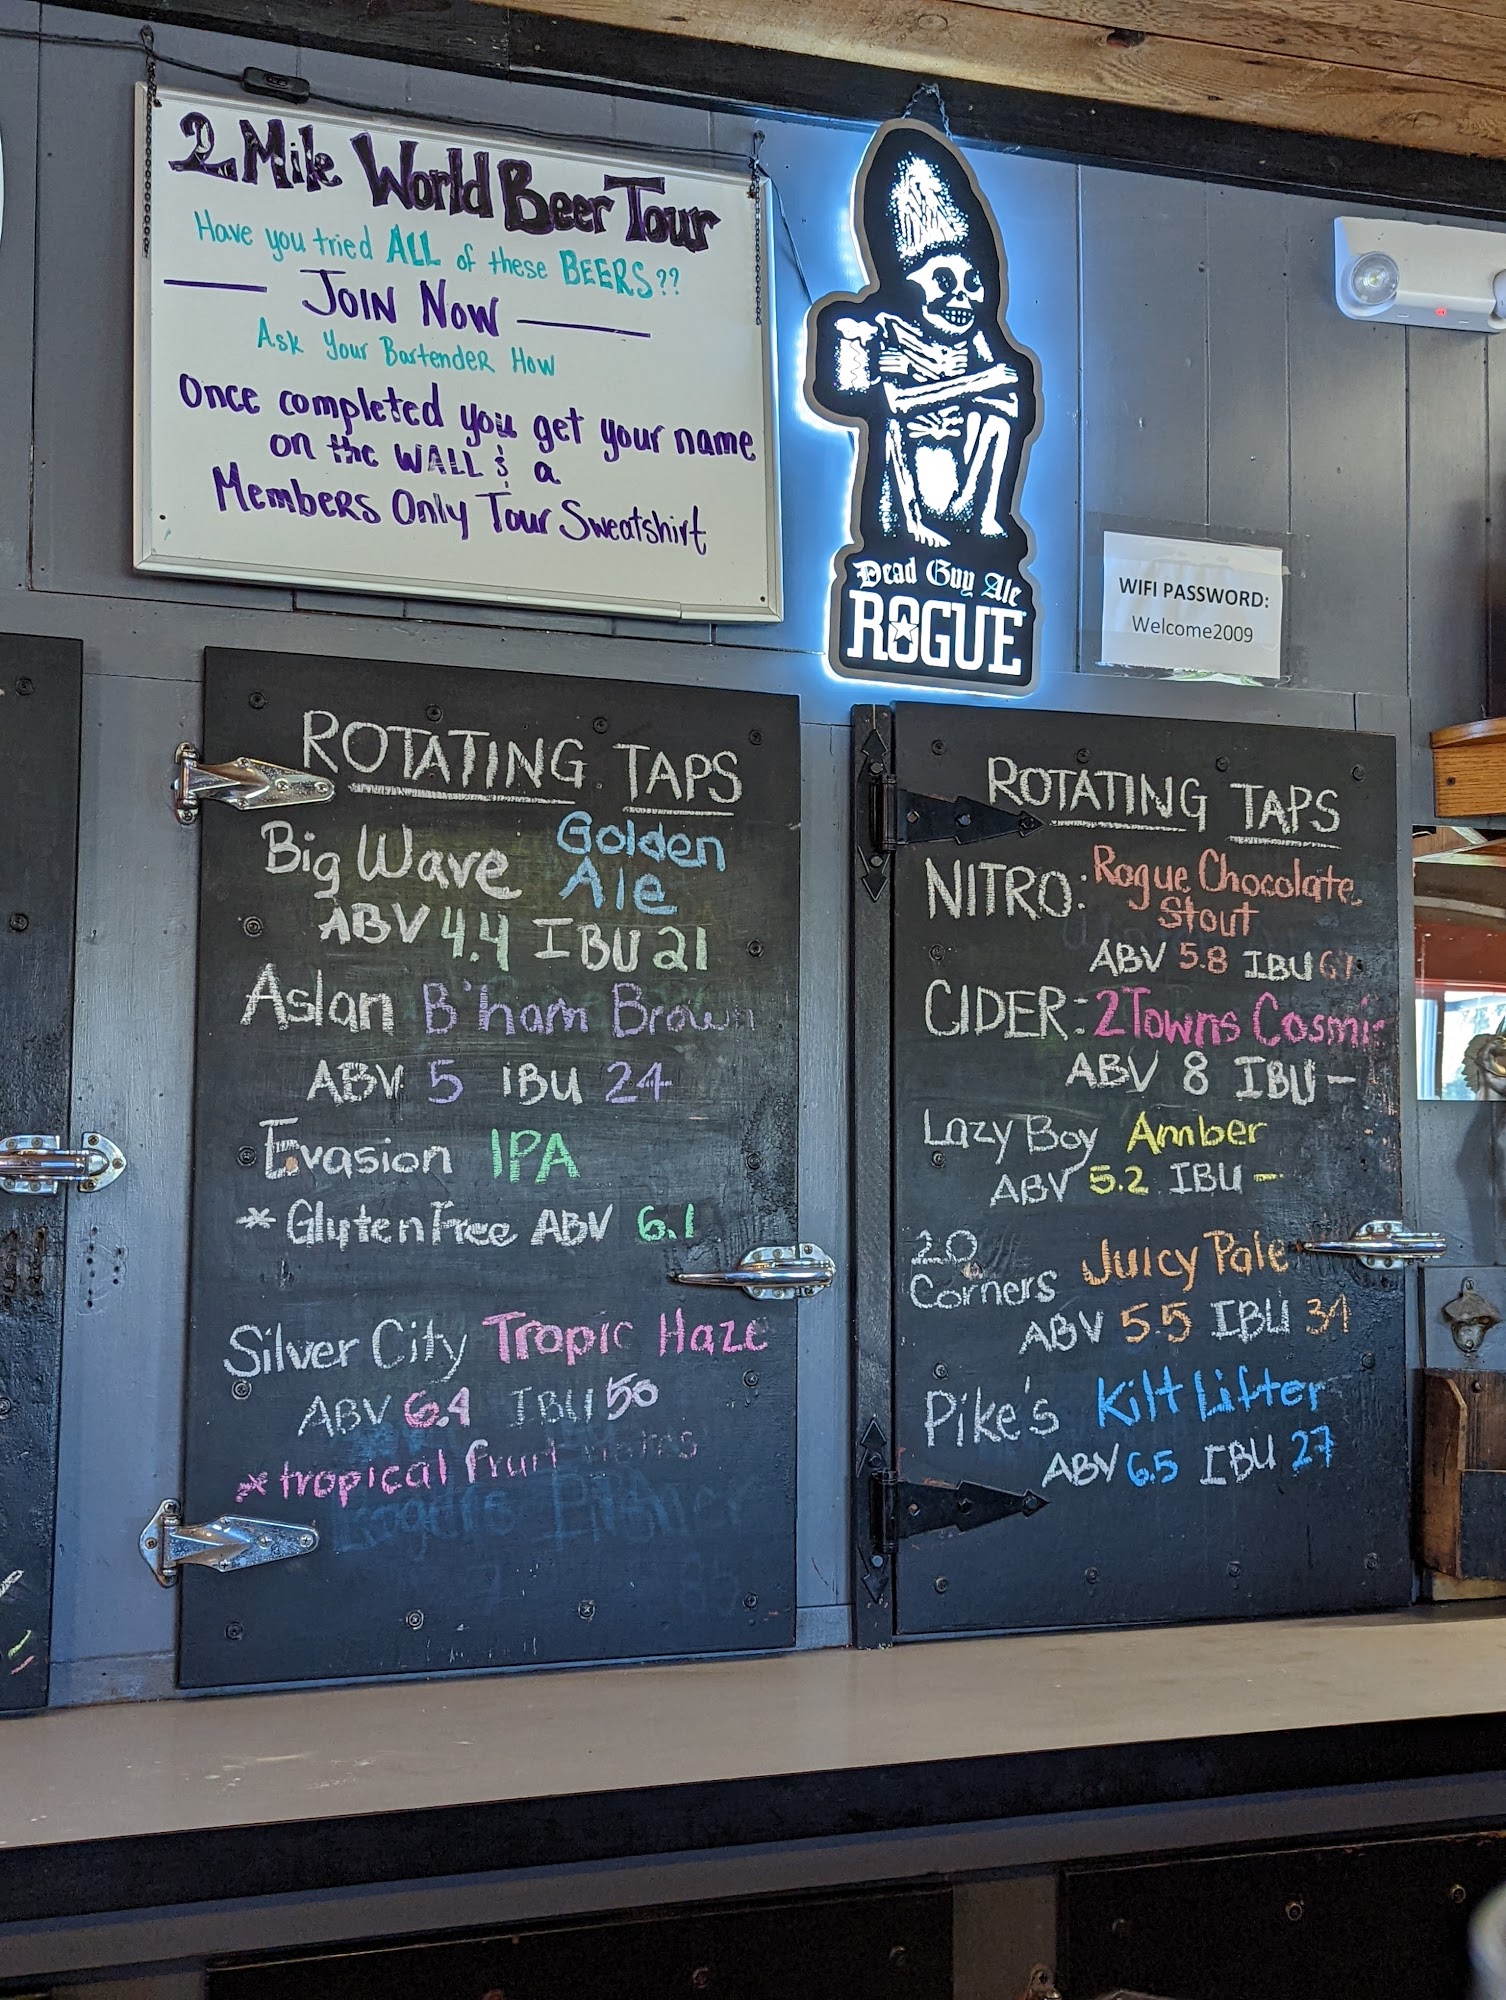 2 Mile World Beer Tour
Have you tried ALL of these BEERS??
JOIN NOW
Ask Your Bartender How
Once completed you get your name
on the WALL & a
Members Only Tour Sweatshirt
Dead Guy Ale
ROGUE
WIFI PASSWORD:
Welcome2009
ROTATING TAPS
Big Wave Golden
Ale
ABV 4.4 IBU 21
Aslan B'ham Brown
ABV 5 IBU 24
Evasion IPA
* Gluten Free ABV 6.1
Silver City Tropic Haze
ABV 6.4 IBU 50
* tropical fruit
ROTATING TAPS
NITRO: Rogue Chocolate
Stout
ABV 5.8 IBU
CIDER: 2Towns Cosmic
ABV 8 IBU -
Lazy Boy Amber
ABV 5.2 IBU -
20
Corners Juicy Pale
ABV 5.5 IBU
Pike's Kilt Lifter
ABV 6.5 IBU 27